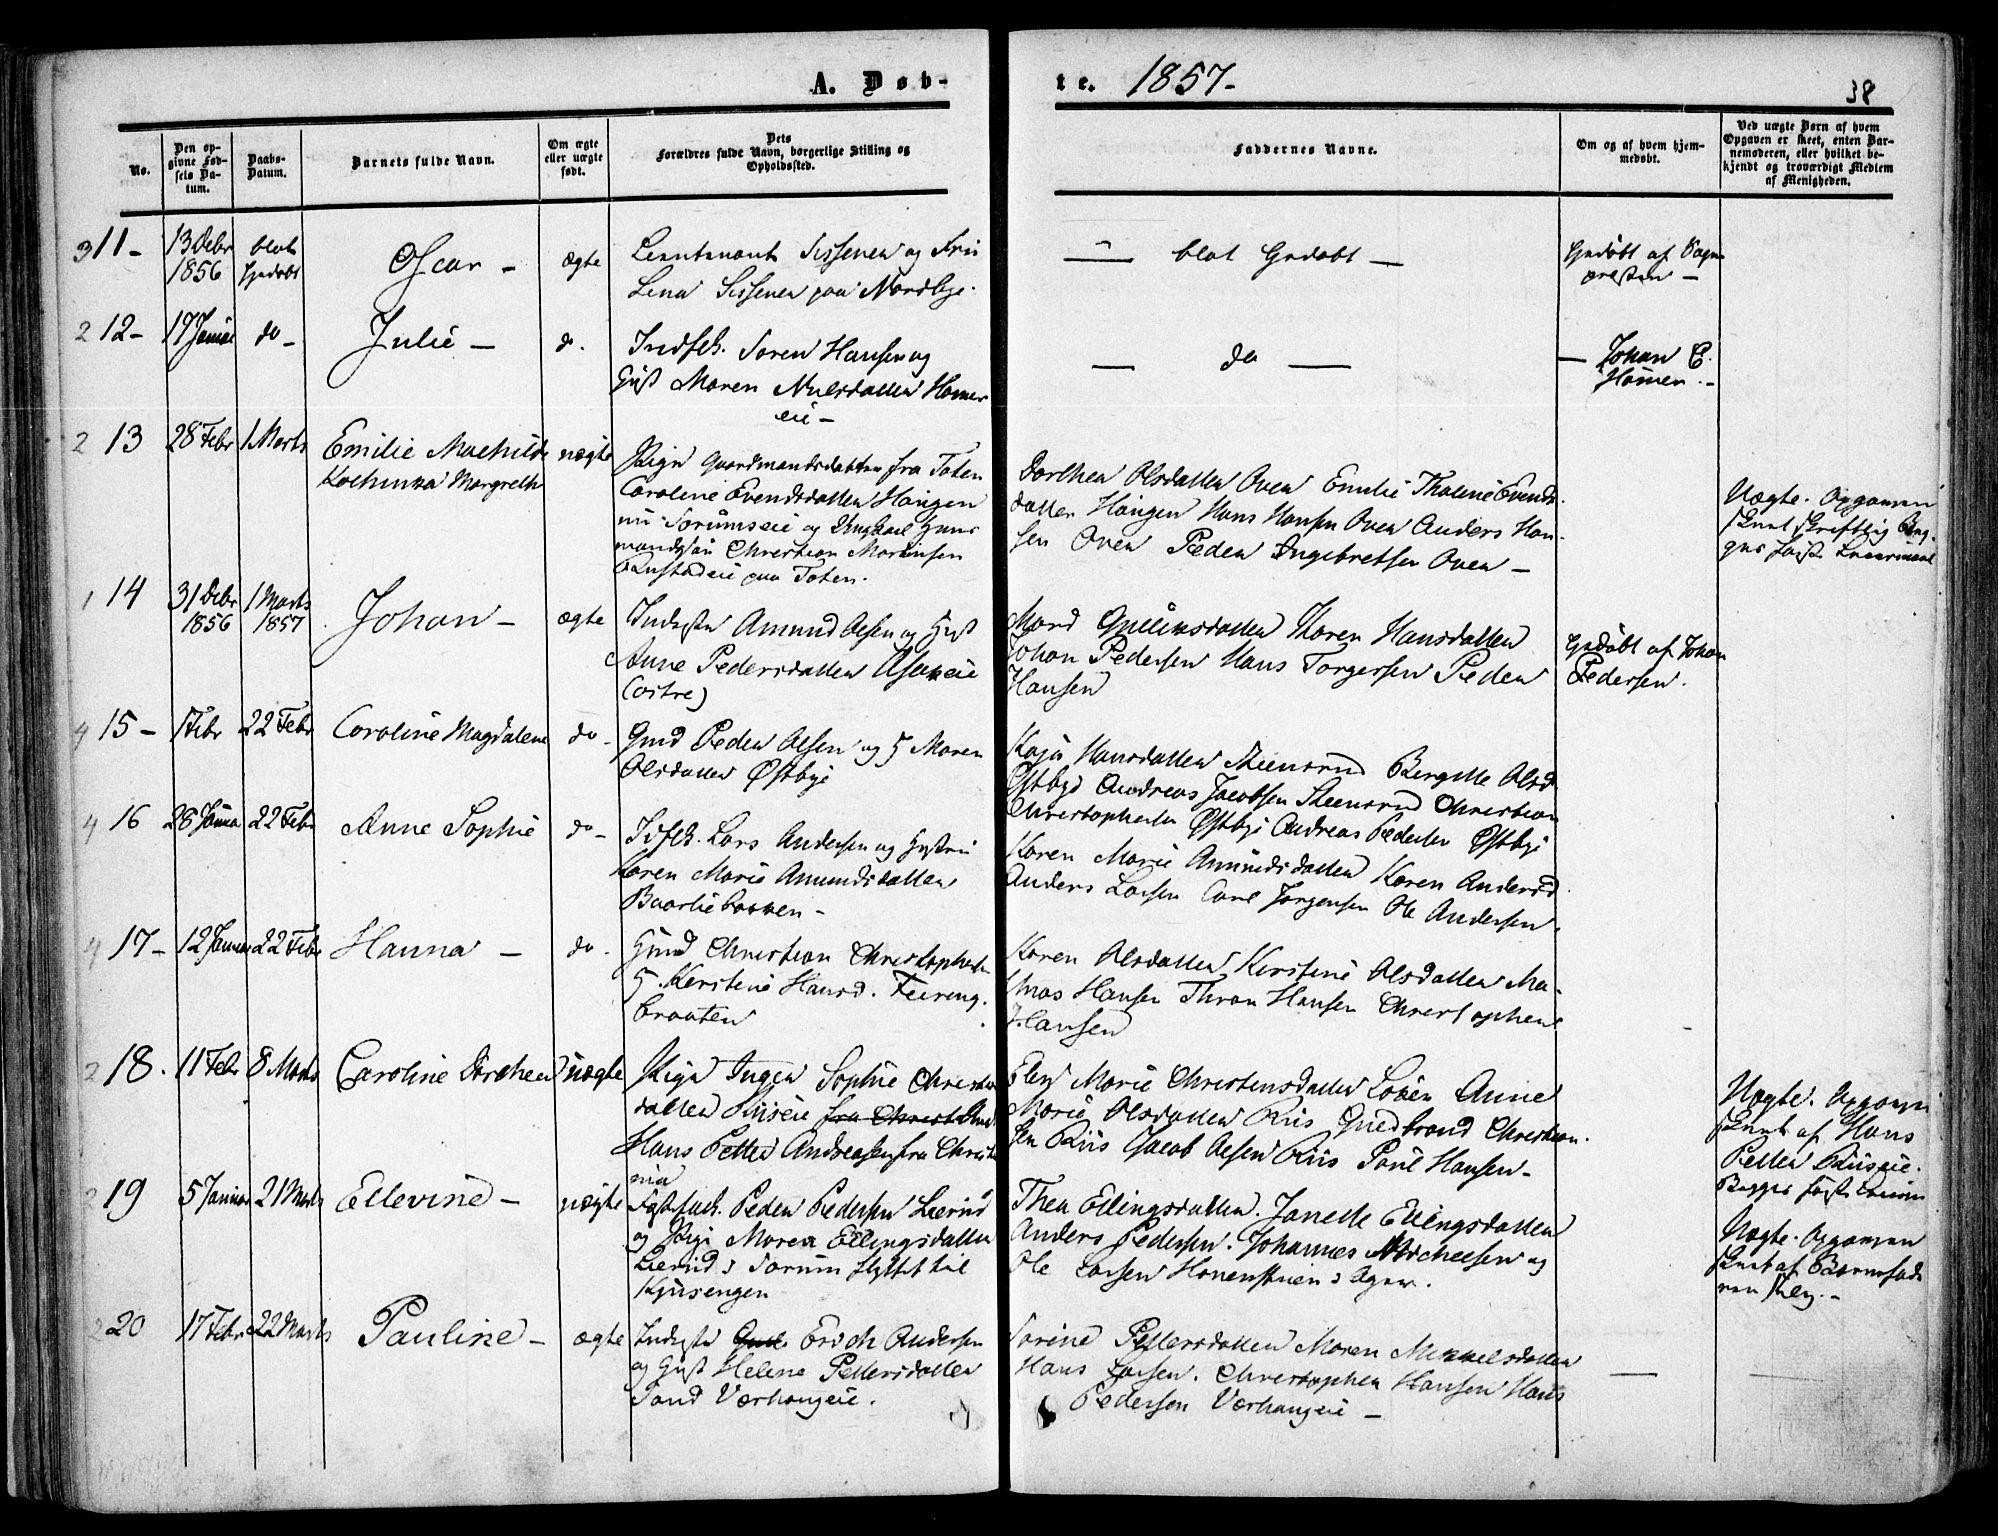 A. Døb-
te. 1857-
38
No.
Den op-
givne Fød-
sels Da-
tum.
Daabs-
Datum.
Barnets fulde Navn.
Om ægte
eller uægte
født.
Dets
Forældres fulde Navn, borgerlige Stilling og
Opholdssted.
Faddernes Navne.
Om og af hvem hjem-
medøbt.
Ved uægte Børn af hvem
Opgaven er skeet, enten Bar-
nemoderen, eller hvilket be-
kjendt og troværdigt Medlem
af Menigheden.
3 11-
13 Debr
1856
blot
Oscar -
ægte
Lieutenant Sissener og Fru
Lena Sissener paa Nordbye.
blot
Sogne
præsten -
2 12-
17 Januar
do -
Julie -
d.
Indsk. Soren Hansen og
Gift Maren Nielsdatter
eie -
- do -
- Johan E.
2 13
28 Febr
1 Marts
Emilie Mathilde
Margrethe
uægte
Pige Gaardmandsdatter fra Toten
Caroline Evendsdatter Haugen
og Ungkarl
Christian Martinsen
paa Toten.
Dorthea Olsdatter Oven Emilie Thaline Evends
datter Haugen Hans Hansen Oven Anders Han
sen Oven Peder Ingebretsen Oven -
Uægte. Opgaven
skeet skriftlig
1 14
31 Debr
1856
1 Marts
1857
Johan -
ægte
Inderste Amund Olsen og Gift
Anne Pedersdatter
(østre)
Mari Thoren Hansdatter
Johan Pedersen Hans Torgersen Peder
Hansen
af Johan
Pedersen.
4 15 -
1 Febr
22 Febr
Caroline Magdalene
do -
Gmd Peder Olsen og G Maren
Olsdatter Østbye
Kaja Hansdatter Steensrud Bergitte Olsd
Østbye Andreas Jacobsen Steensrud Christian
Christophersen Østbye Andreas Pedersen Østbye
4 16
28 Janua
22 Febr
Anne Sophie
do -
Lars Andersen og
Karen Marie Amundsdatter
Baarliebakken -
Karen Marie Amundsdatter Karen Andersd
Anders Larsen Carl Jørgensen Ole Andersen.
4 17 -
12 Januar
22 Febr
Hanna -
do -
Gmd Christian Christophersen
G. Kerstine Hansd. Feiring.
braaten
Karen Olsdatter Kirstine Olsdatter Ma-
thias Hansen Thron Hansen Christopher
Hansen
2 18.
11 Febr
8 Marts
Caroline Dorthea
uægte
Pige Inger Sophie Christians
datter Riiseie
Hans Petter Andreasen fra Christia
nia
Eley Marie Christensdatter Løken Anne
Marie Olsdatter Riis Gudbrand Christian-
sen Riis Jacob Olsen Riis Poul Hansen -
Uægte. Opgaven
skeet af Hans
Petter Riiseie.
Begges første
2 19
5 Januar
21 Marts
Ellevine -
uægte
Peder Pedersen Lierud
og Pige Maren Ellingsdatter
Lierud i Sørum flyttet til
Kjusengen
Thea Ellingsdatter. Janette Ellingsdatter
Anders Pedersen. Johannes Michelsen og
Ole Larsen
Uægte. Opgaven
skeet af Barnefade
ren selv. -
2 20
17 Febr
22 Marts
Pauline -
ægte
Inderste Erich Andersen
og Gift Helene Pettersdatter
Sand Værhaugeie.
Sorine Pettersdatter Maren Mikkelsdatter
Hans Larsen. Christopher Hansen Hans
Pedersen Værhaugeie -